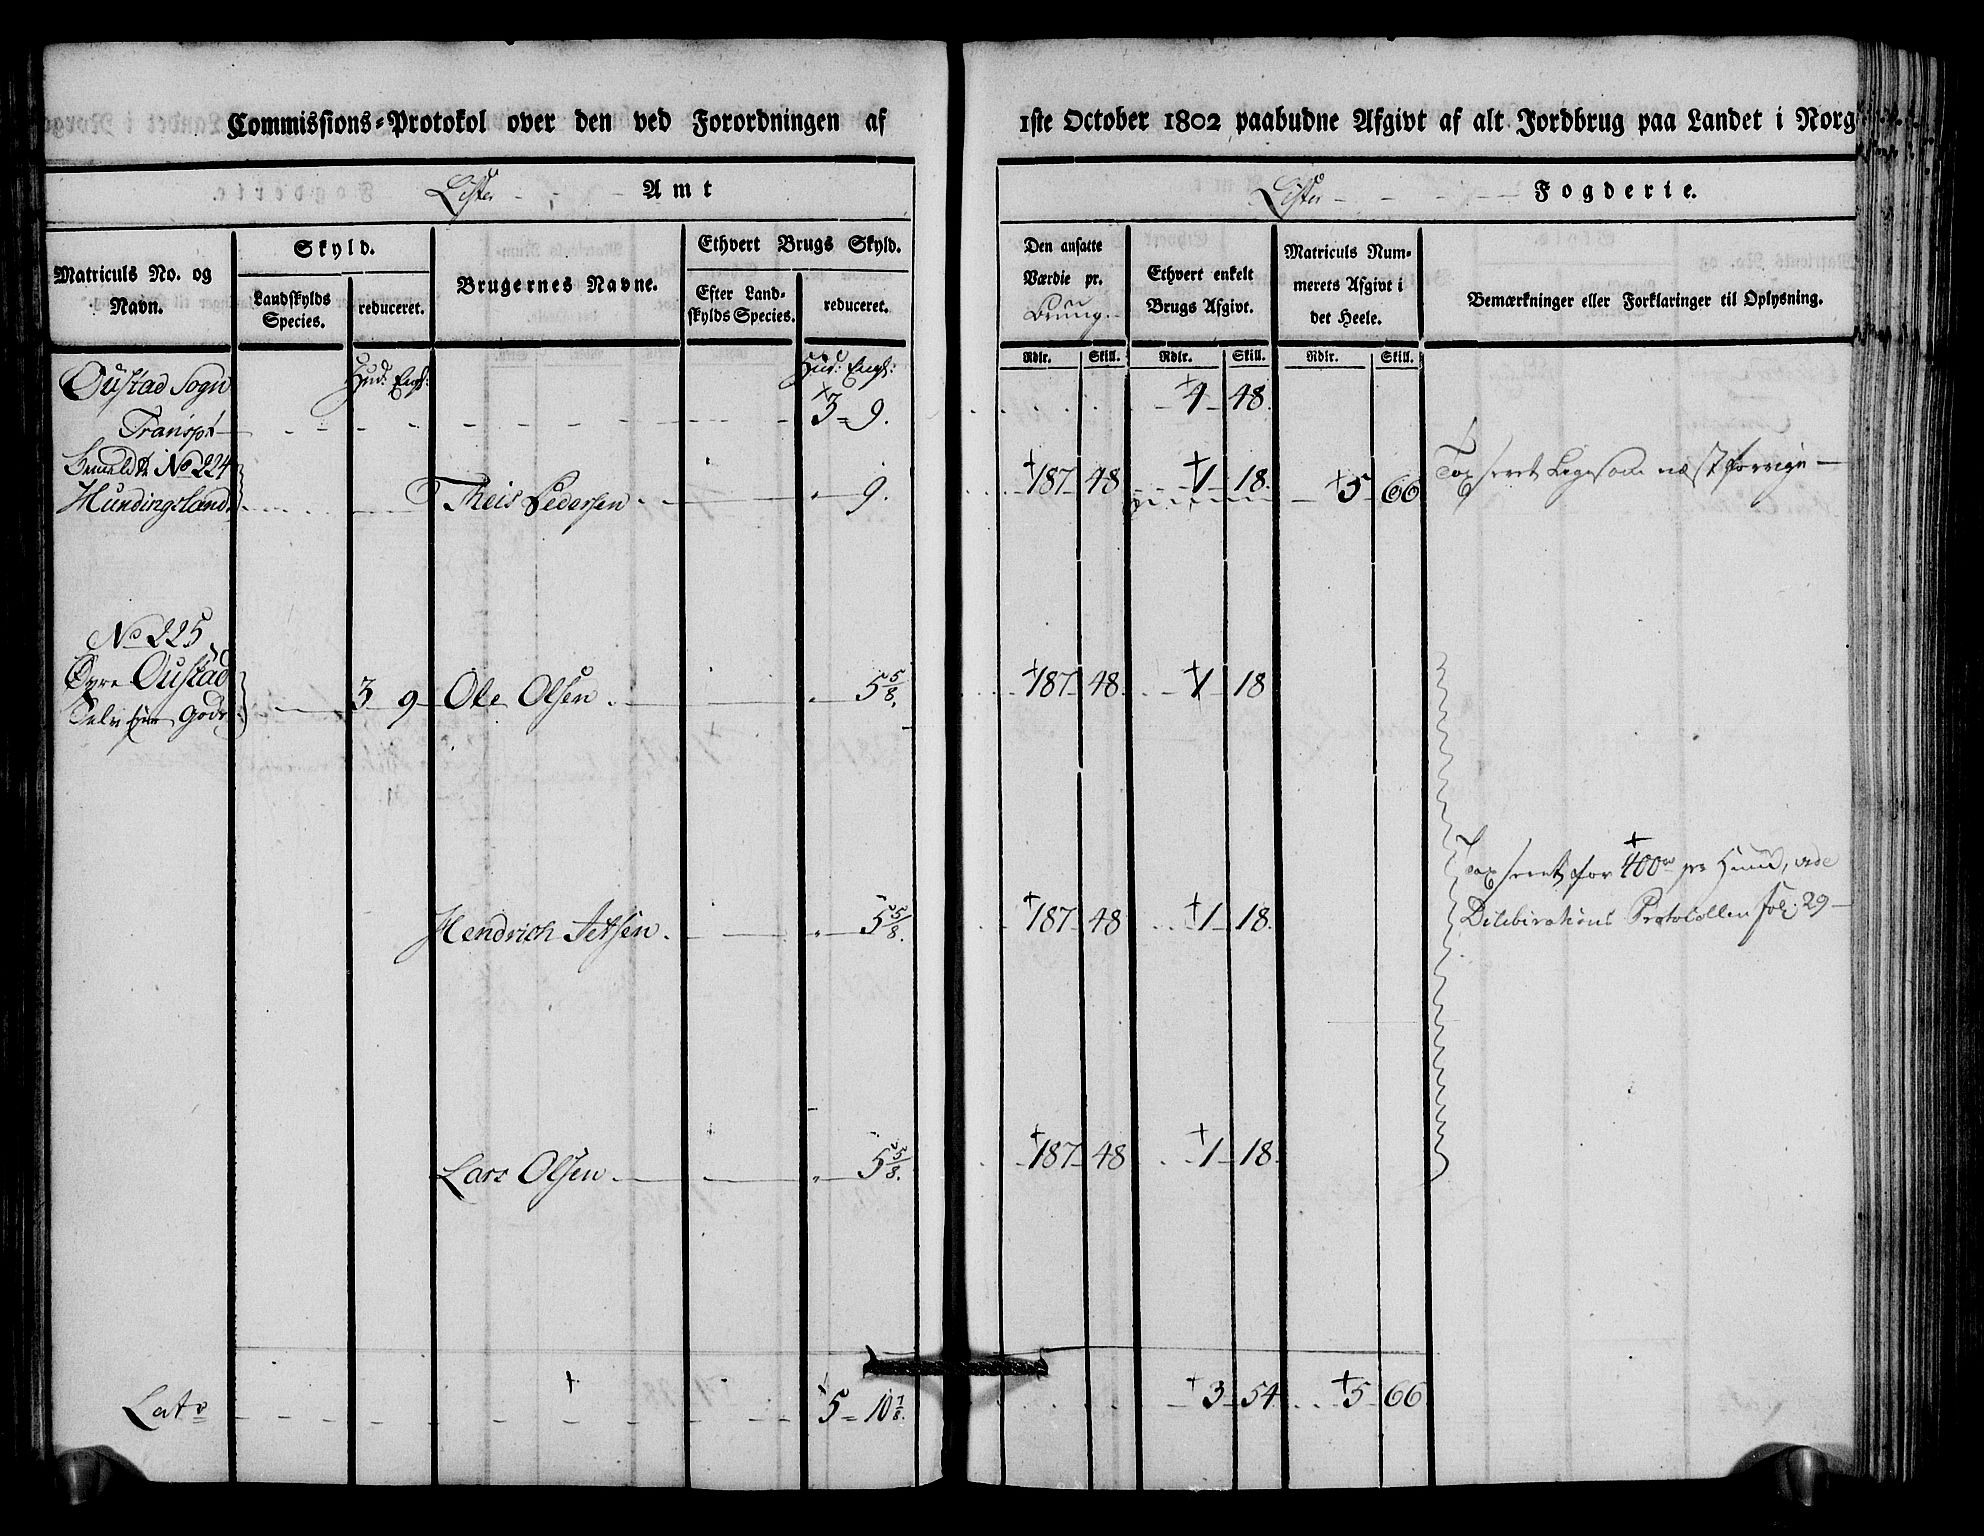 Commissions-Protokol over den ved Forordningen af 1ste October 1802 paabudne Afgivt af alt Jordbrug paa Landet i Norg
Lister Amt
Lister Fogderie.
Matriculs No. og Navn.
Skyld.
Landskylds Species.
reduceret.
Brugernes Navne.
Ethvert Brugs Skyld.
Efter Landskylds Species.
reduceret.
Den ansatte Værdie pr. Brug.
Ethvert enkelt Brugs Afgivt.
Matriculs Nummerets Afgivt i det Heele.
Bemærkninger eller Forklaringer til Oplysning.
Rdlr. Skill. Rdlr. Skill. Rdlr. Skill.
Oustad Sogn Hud: Eng: Hud: Eng:
Transpt 3 = 9. 4 48.
Bemeldte No 224
Hundingsland Theis Pedersen 9. 187 48 1 18 5 66 Taxseret Ligesom næst forrige
No 225
Øvre Oustad
Selv Eier Gods 3 9 Ole Olsen 5 5/8. 187 48 1 18
Taxseret for 400 rd pr Huud, vide
Hendrich Jetsen 5 5/8. 187 48 1 18 Dilibirations Protocollen Fol: 29
Lars Olsen 5 5/8. 187 48 1 18
Lats 5 = 10 7/8. 3 54 5 66